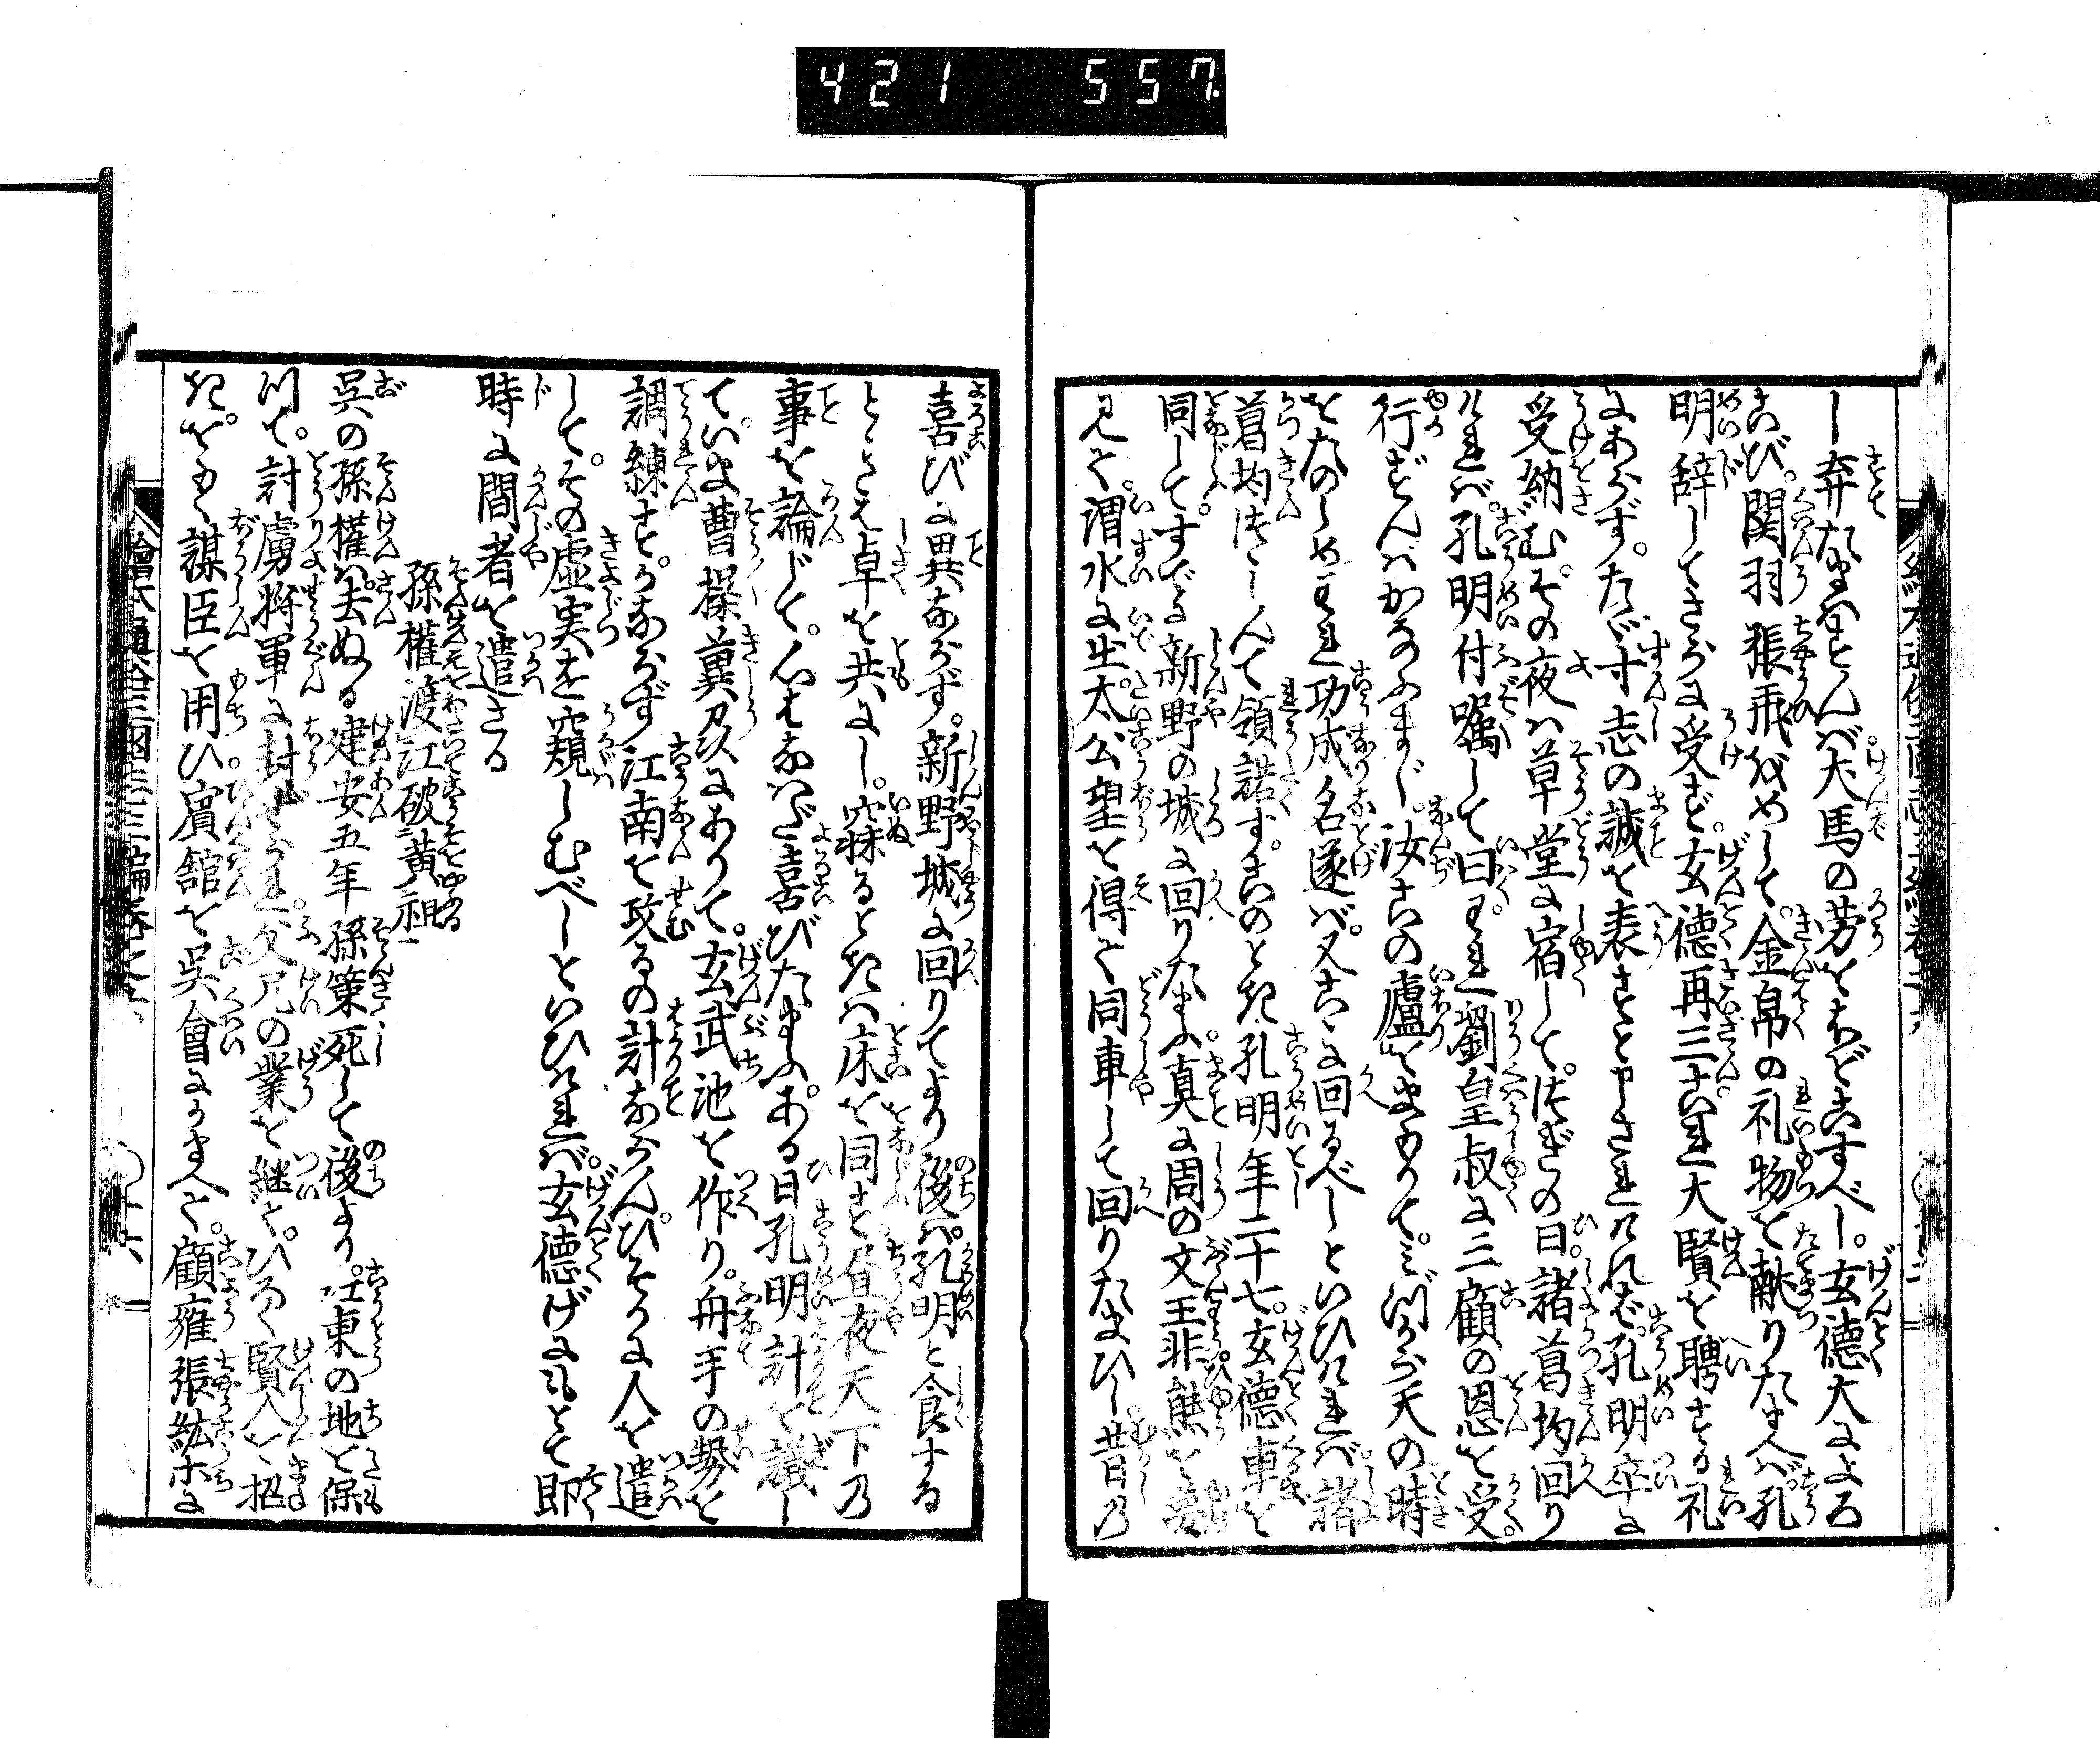 421 557
し弃たまはずんバ。犬馬の労をほどこすべし。玄徳大によろ
こび。関羽張飛をめして。金帛の礼物を献りたまへバ。孔
明辞してさらに受ず。玄徳再三これ大賢を聘する礼
にあらず。たゞ寸志の誠を表すと申されけれバ。孔明卒に
受納む。その夜ハ草堂に宿して。次ぎの日。諸葛均回り
けれバ。孔明付嘱して曰。われ劉皇叔に三顧の恩を受。
行ずんハかなふまじ。汝この廬をまもりて。みづから天の時
をたのしめ。われ功成名遂バ。又こゝに回るべしといひけれバ諸
葛均つゝしんで領諾す。このとき孔明年二十七。玄徳車を
同して。すでに新野の城に回りたまふ。真に周の文王非熊を
見て。渭水に出。太公望を得て同車して回りたまひし。昔日の
喜びに異ならず。新野城に回りてより後ハ。孔明と食する
ときも卓を共にし。寐るときハ床を同す。昼夜天下の
事を論じて。心をなハだ喜びたまふ。ある日孔明計を議し
て。いま曹操冀州にありて。玄武池を作り。舟手の勢を
調練す。かならず江南を攻るの計ならん。ひそかに人を遣
して。その虚実を窺しむべしといひけれバ。玄徳げにもとて即
時に間者を遣さる
孫権渡江破黄祖
呉の孫権ハ。去ぬる建安五年孫策死して後より。江東の地を保
つて。討虜将軍に封ぜられ。父兄の業を継で。ひろく賢人を招
き。よく謀臣を用ひ賓舘を呉會にかまへて。顧雍張紘等に
繪本通俗三國志三編巻之六